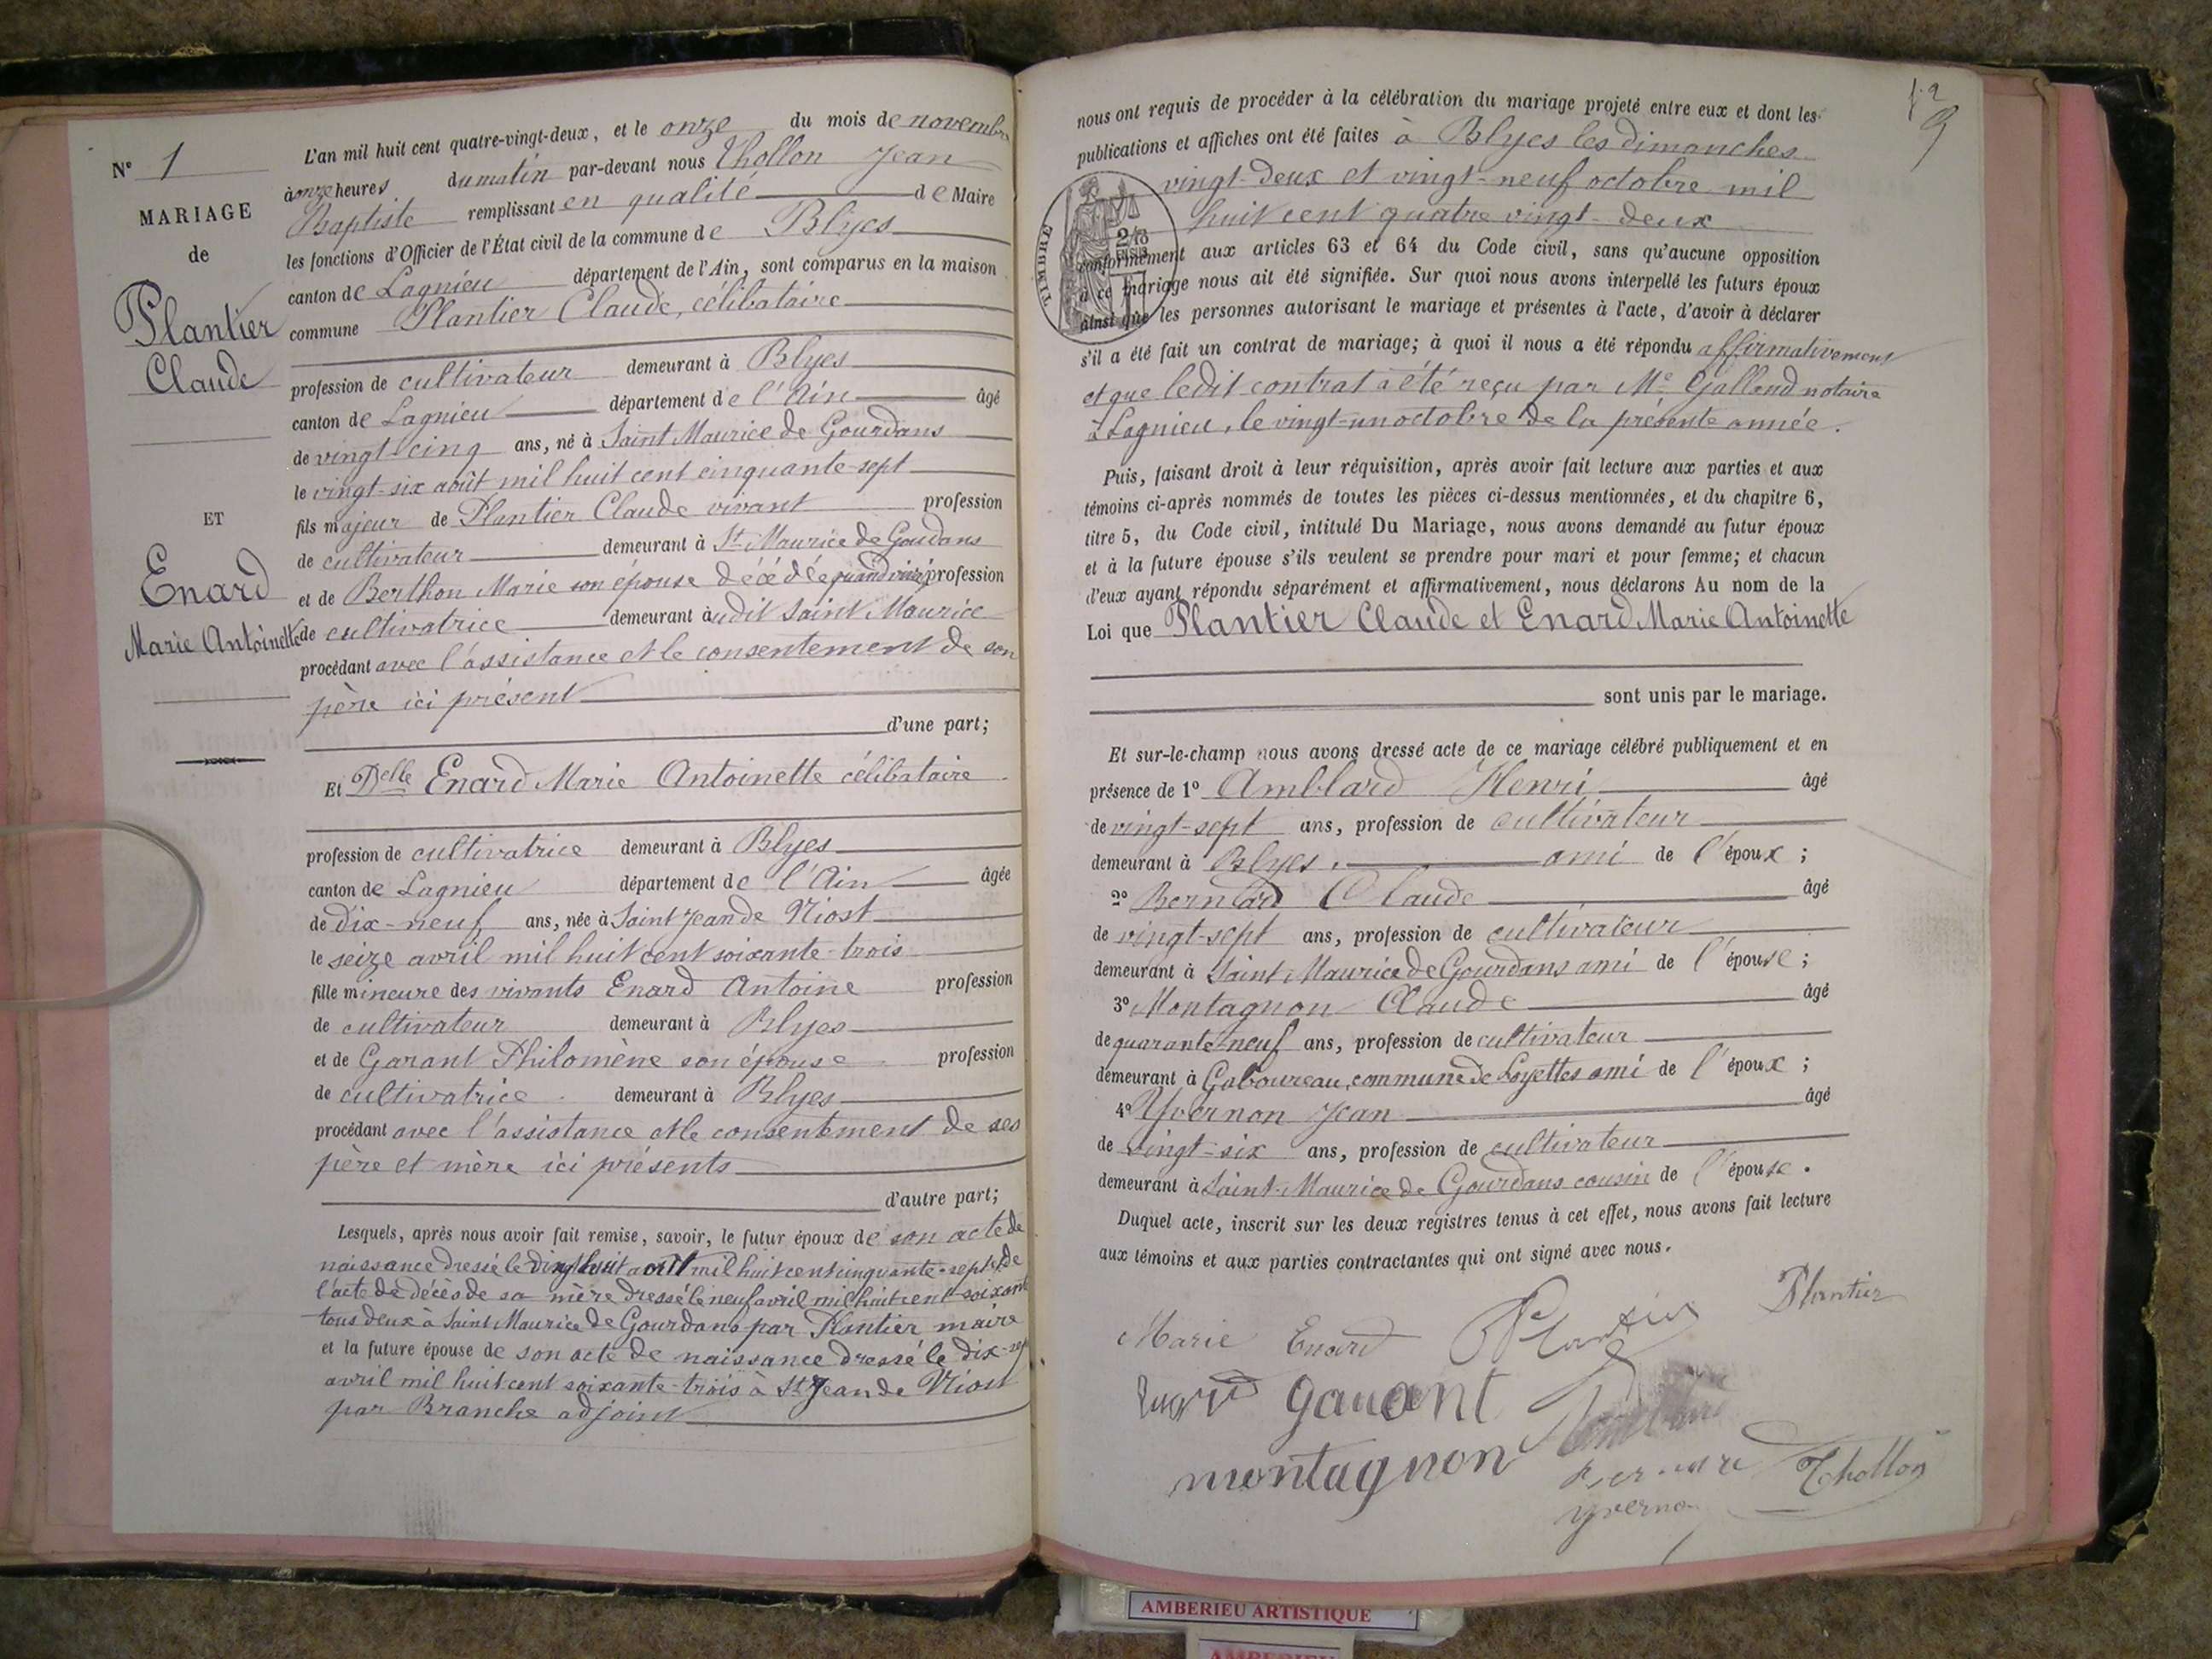 N° 1
MARIAGE
de
Plantier
Claude
ET
Enard
Marie Antoinette
L'an mil huit cent quatre-vingt-deux, et le onze du mois de novembre
à onze heures du matin par-devant nous Thollon Jean
Baptiste remplissant en qualité de Maire
les fonctions d'Officier de l'État civil de la commune de Blyes
canton de Lagnieu département de l'Ain, sont comparus en la maison
commune Plantier Claude, célibataire
profession de cultivateur demeurant à Blyes
canton de Lagnieu département de l'Ain âgé
de vingt-cinq ans, né à Saint Maurice de Gourdans
le vingt-six août mil huit cent cinquante-sept
fils majeur de Plantier Claude vivant profession
de cultivateur demeurant à St Maurice de Goudans
et de Berthon Marie son épouse décédée quand vivait profession
de cultivatrice demeurant àudit Saint Maurice
procédant avec l'assistance et le consentement de son
père ici présent
d'une part;
Et Delle Enard Marie Antoinette célibataire
profession de cultivatrice demeurant à Blyes
canton de Lagnieu département de l'Ain âgée
de dix-neuf ans, née à Saint Jean de Niost
le seize avril mil huit cent soixante-trois
fille mineure des vivants Enard Antoine profession
de cultivateur demeurant à Blyes
et de Garant Philomène son épouse profession
de cultivatrice demeurant à Blyes
procédant avec l'assistance et le consentement de ses
père et mère ici présents
d'autre part;
Lesquels, après nous avoir fait remise, savoir, le futur époux de son acte de
naissance dressé le vingt huit août mil huit cent cinquante-sept & de
l'acte de décès de sa mère dressé le neuf avril mil huit cent soixante
tous deux à Saint Maurice de Gourdans par Plantier maire
et la future épouse de son acte de naissance dressé le dix-sept
avril mil huit cent soixante-trois à St Jean de Niost
par Branche adjoint
9
nous ont requis de procéder à la célébration du mariage projeté entre eux et dont les
publications et affiches ont été faites à Blyes les dimanches
vingt-deux et vingt-neuf octobre mil
huit cent quatre vingt-deux
TIMBRE
conformément aux articles 63 et 64 du Code civil, sans qu'aucune opposition
à ce mariage nous ait été signifiée. Sur quoi nous avons interpellé les futurs époux
ainsi que les personnes autorisant le mariage et présentes à l'acte, d'avoir à déclarer
s'il a été fait un contrat de mariage; à quoi il nous a été répondu affirmativement
et que ledit contrat à été reçu par Me Galland notaire
à Lagnieu, le vingt-un octobre de la présente année.
Puis, faisant droit à leur réquisition, après avoir fait lecture aux parties et aux
témoins ci-après nommés de toutes les pièces ci-dessus mentionnées, et du chapitre 6,
titre 5, du Code civil, intitulé Du Mariage, nous avons demandé au futur époux
et à la future épouse s'ils veulent se prendre pour mari et pour femme; et chacun
d'eux ayant répondu séparément et affirmativement, nous déclarons Au nom de la
Loi que Plantier Claude et Enard Marie Antoinette
sont unis par le mariage.
Et sur-le-champ nous avons dressé acte de ce mariage célébré publiquement et en
présence de 1° Amblard Henri âgé
de vingt-sept ans, profession de cultivateur
demeurant à Blyes. ami de l'époux;
2° Bernard Claude âgé
de vingt-sept ans, profession de cultivateur
demeurant à Saint Maurice de Gourdans ami de l'épouse;
3° Montagnon Claude âgé
de quarante-neuf ans, profession de cultivateur
demeurant à Gaboureau, commune de Loyettes ami de l'époux;
4° Yvernon Jean âgé
de vingt-six ans, profession de cultivateur
demeurant à Saint-Maurice de Gourdans cousin de l'épouse.
Duquel acte, inscrit sur les deux registres tenus à cet effet, nous avons fait lecture
aux témoins et aux parties contractantes qui ont signé avec nous.
Plantier
Marie Enard Plantier
garant
montagnon
Thollon
yvernon
AMBERIEU ARTISTIQUE
AMBERIEU